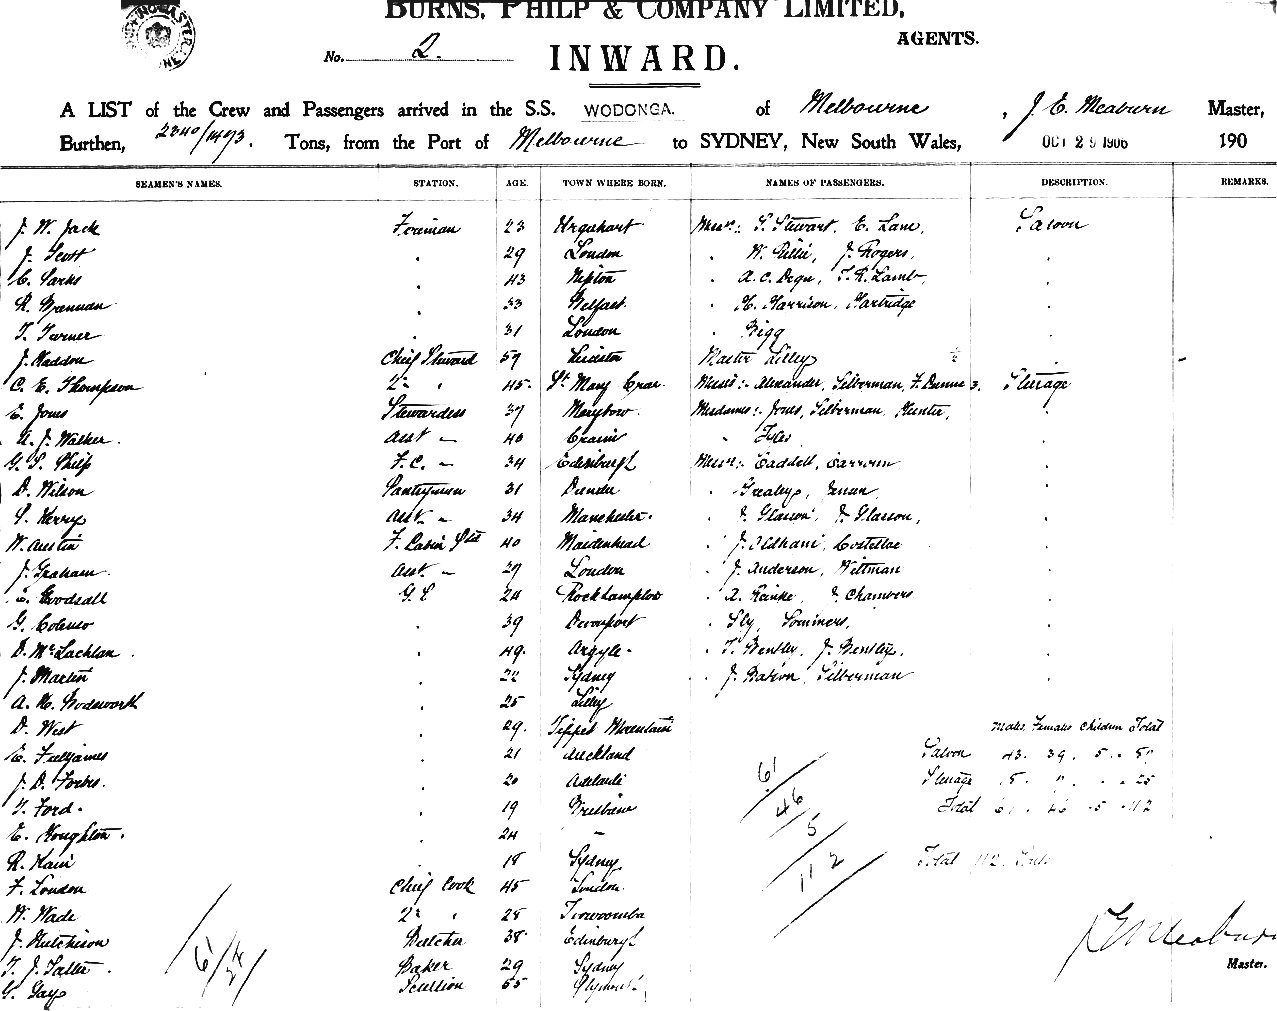 BURNS, PHILP & COMPANY LIMITED,
AGENTS.
No. 2
INWARD.
A LIST of the Crew and Passengers arrived in the S.S. WODONGA. of Melbourne, J. E. Meaburn Master,
Burthen, 2340/1473. Tons, from the Port of Melbourne to SYDNEY, New South Wales, OCT 29 1906 190
SEAMEN'S NAMES. STATION. AGE. TOWN WHERE BORN. NAMES OF PASSENGERS. DESCRIPTION. REMARKS.
J. W. Jack Fireman 23 Urquhart Messrs:- S. Stewart, E. Lane, Saloon
J. Scott 29 London J. Rogers,
C. Parks 43 T. R. Lamb,
R. Brennan 33 Belfast H. Harrison, Hartridge
T. Turner 31 London Bigg
J. Haddon Chief Steward 59 Leicester Master Lilley
C. E. Thompson 2nd " 45 St Mary Cray Messrs:- Alexander, Silberman, F. Dunne 3. Steerage
E. Jones Stewardess 37 Mesdames:- Jones, Silberman, Hunter,
A. J. Walker Asst " 40
G. S. Philp F.C. " 34 Edinburgh Messrs:- Caddell,
D. Wilson Pantryman 31 Dundee
S. Kerry Asst " 34 Manchester J. Glasson, J. Glasson,
W. Austin F. Cabin Std 40 Maidenhead J. Oldham, Costelloe
J. Graham Asst " 29 London J. Anderson, Wittman
E. Goodsall G. S 24 Rockhampton A. Rainke, J. Chambers
G. Colenso 39 Devonport Sly, Sominers,
D. McLachlan 49 Argyle T. Bensley, J. Bensley,
J. Martin 22 Sydney Silberman
A. H. Wodsworth 25
D. West 29
Males Females Children Total
E. Fulljames 21 Auckland
Saloon 43. 39. 5. 87
J. D. Forbes 20 Adelaide
61
Steerage 25
T. Ford 19 Brisbane
46
Total 61. 46. 5. 112
E. Houghton 24 "
5
R. Hain 18 Sydney
112
Total 112.
F. London Chief Cook 45 London
W. Wade 2nd " 28 Toowoomba
J. Hutchison Butcher 38 Edinburgh
61
J. E. Meaburn
T. J. Salter Baker 29 Sydney
Master.
G. Gay Scullion 55 Plymouth